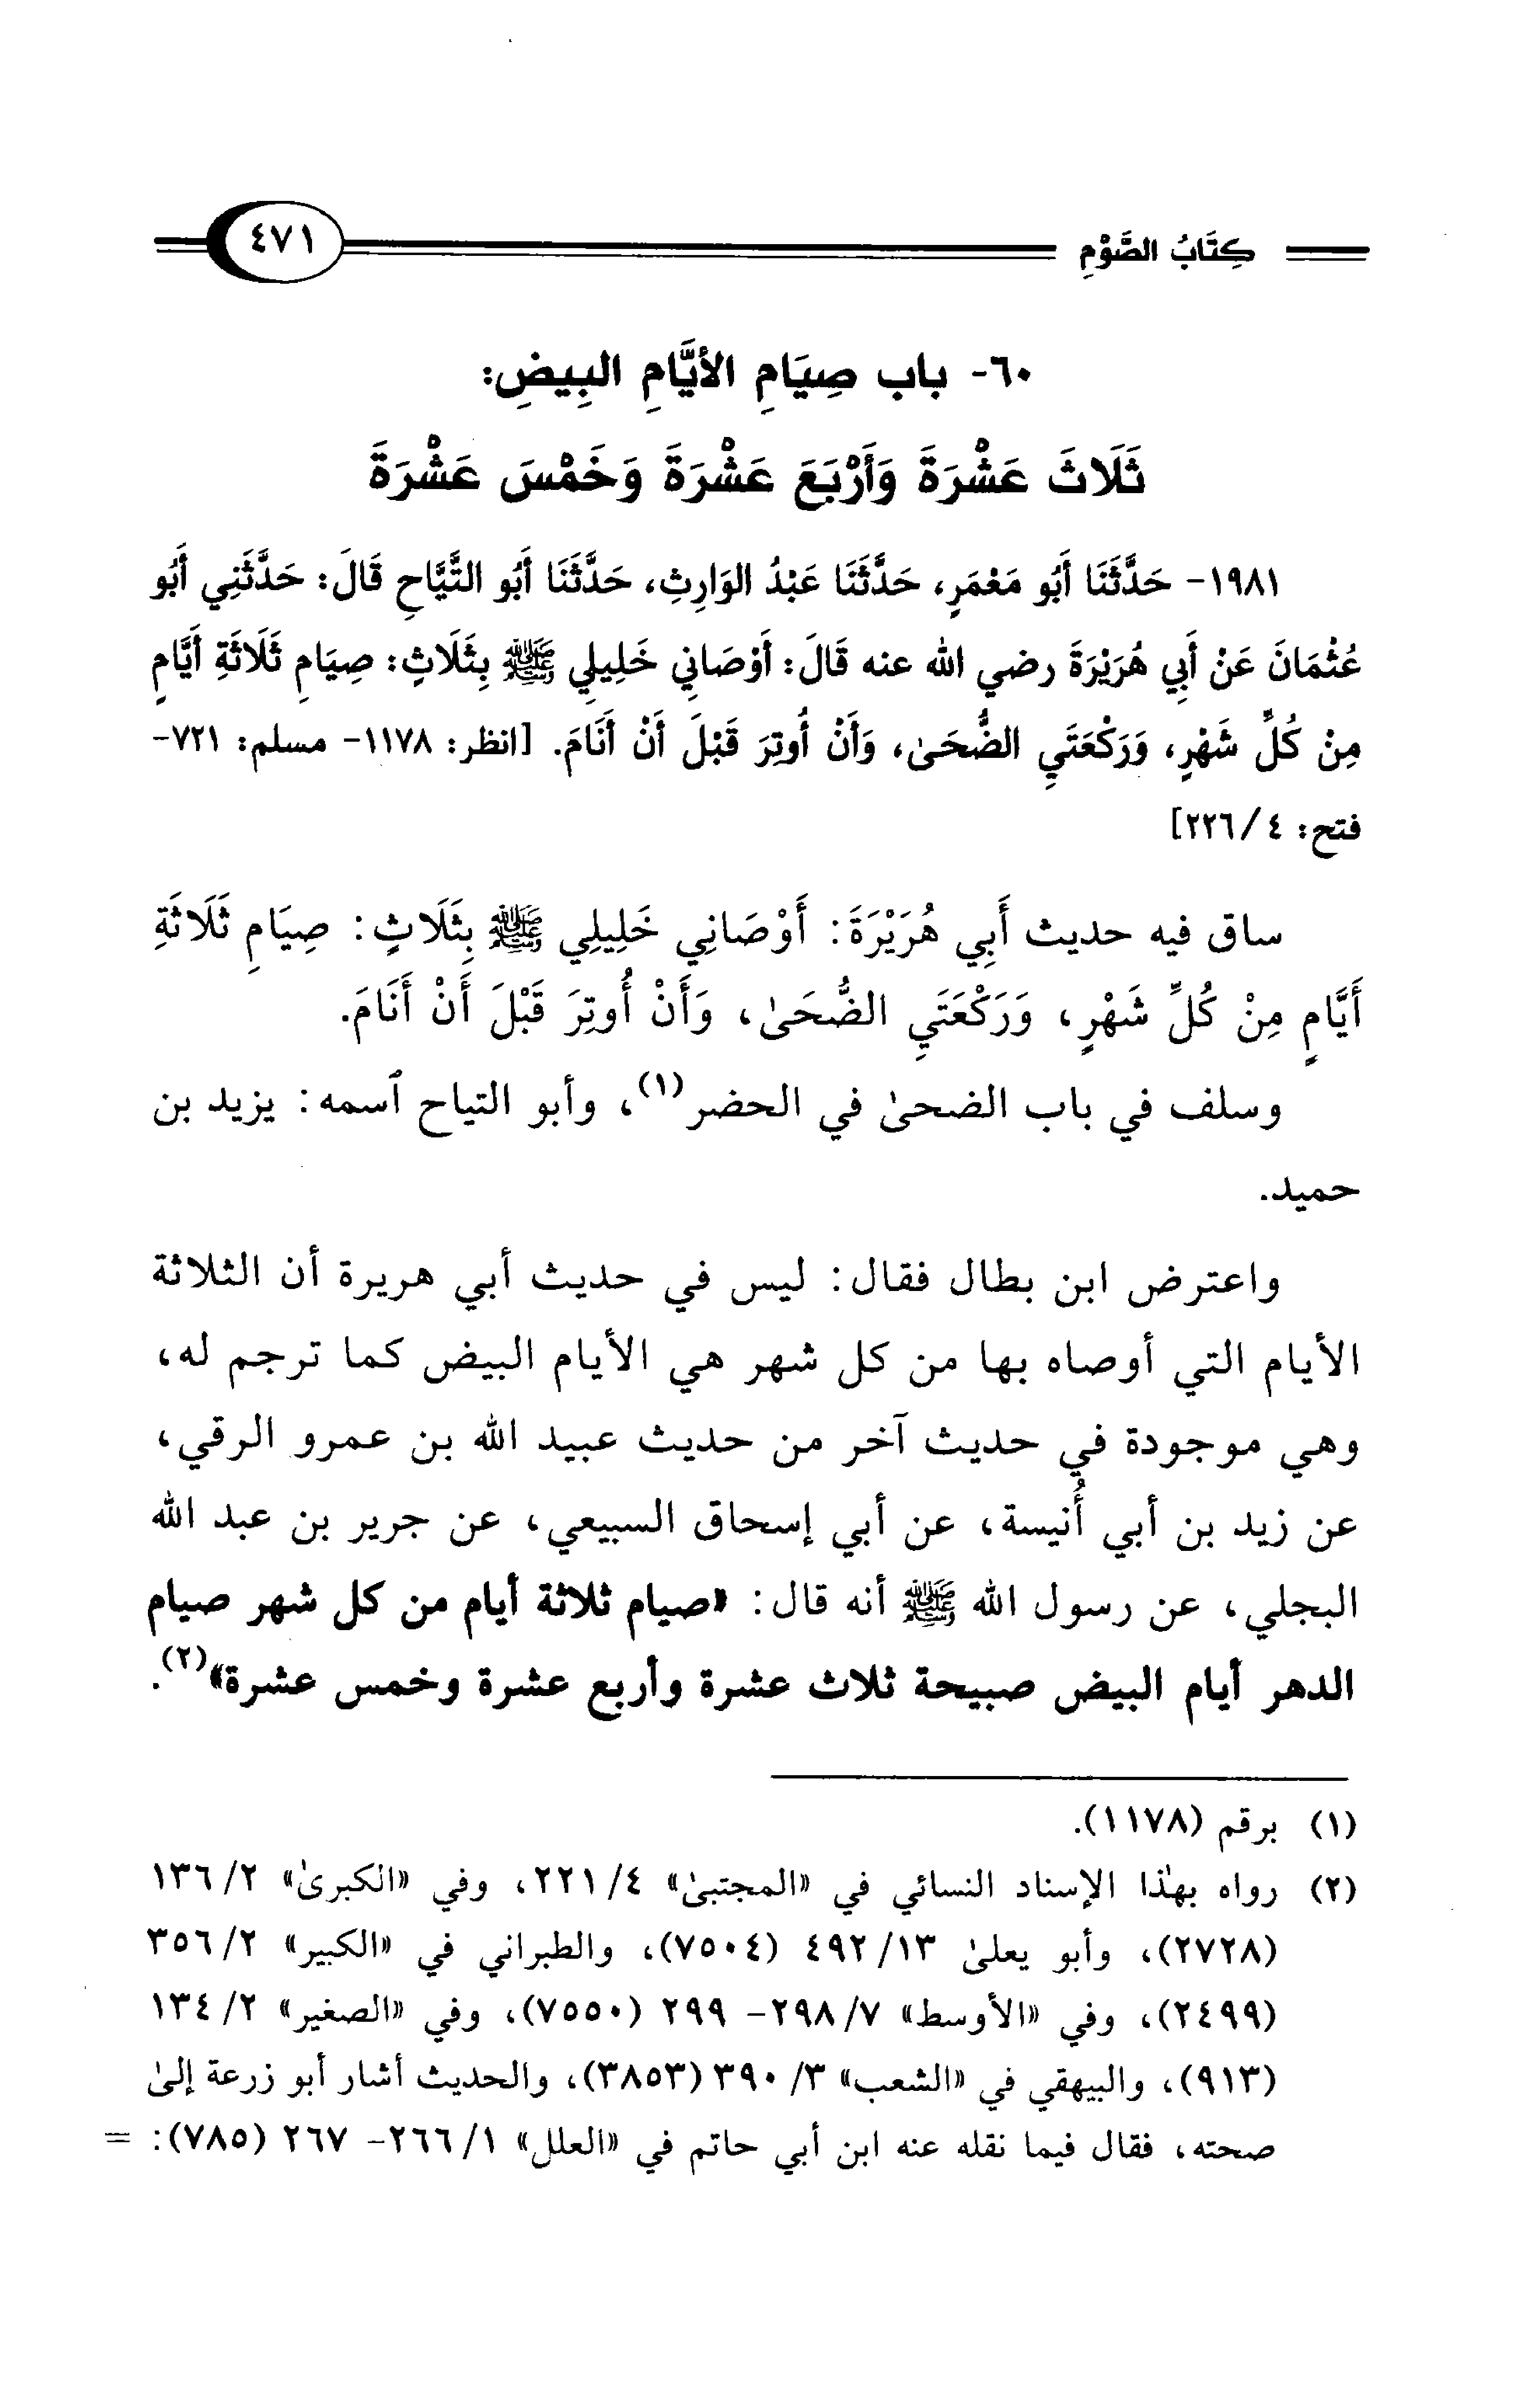 كِتَابُ الصَّوْمِ ٤٧١
٦٠- باب صِيَامِ الأيَّامِ البِيضِ:
ثَلَاثَ عَشْرَةَ وَأَرْبَعَ عَشْرَةَ وَخَمْسَ عَشْرَةَ
١٩٨١- حَدَّثَنَا أَبُو مَعْمَرٍ، حَدَّثَنَا عَبْدُ الوَارِثِ، حَدَّثَنَا أَبُو التَّيَّاحِ قَالَ: حَدَّثَنِي أَبُو
عُثْمَانَ عَنْ أَبِي هُرَيْرَةَ رضي الله عنه قَالَ: أَوْصَانِي خَلِيلِي ﷺ بِثَلَاثٍ: صِيَامِ ثَلَاثَةِ أَيَّامٍ
مِنْ كُلِّ شَهْرٍ، وَرَكْعَتَيِ الضُّحَىٰ، وَأَنْ أُوتِرَ قَبْلَ أَنْ أَنَامَ. [انظر: ١١٧٨- مسلم: ٧٢١-
فتح: ٤/ ٢٢٦]
ساق فيه حديث أَبِي هُرَيْرَةَ: أَوْصَانِي خَلِيلِي ﷺ بِثَلَاثٍ: صِيَامِ ثَلَاثَةِ
أَيَّامٍ مِنْ كُلِّ شَهْرٍ، وَرَكْعَتَيِ الضُّحَىٰ، وَأَنْ أُوتِرَ قَبْلَ أَنْ أَنَامَ.
وسلف في باب الضحىٰ في الحضر(١)، وأبو التياح ٱسمه: يزيد بن
حميد.
واعترض ابن بطال فقال: ليس في حديث أبي هريرة أن الثلاثة
الأيام التي أوصاه بها من كل شهر هي الأيام البيض كما ترجم له،
وهي موجودة في حديث آخر من حديث عبيد الله بن عمرو الرقي،
عن زيد بن أبي أُنيسة، عن أبي إسحاق السبيعي، عن جرير بن عبد الله
البجلي، عن رسول الله ﷺ أنه قال: «صيام ثلاثة أيام من كل شهر صيام
الدهر أيام البيض صبيحة ثلاث عشرة وأربع عشرة وخمس عشرة»(٢).
(١) برقم (١١٧٨).
(٢) رواه بهٰذا الإسناد النسائي في «المجتبىٰ» ٤/ ٢٢١، وفي «الكبرىٰ» ٢/ ١٣٦
(٢٧٢٨)، وأبو يعلىٰ ١٣/ ٤٩٢ (٧٥٠٤)، والطبراني في «الكبير» ٢/ ٣٥٦
(٢٤٩٩)، وفي «الأوسط» ٧/ ٢٩٨- ٢٩٩ (٧٥٥٠)، وفي «الصغير» ٢/ ١٣٤
(٩١٣)، والبيهقي في «الشعب» ٣/ ٣٩٠ (٣٨٥٣)، والحديث أشار أبو زرعة إلىٰ
صحته، فقال فيما نقله عنه ابن أبي حاتم في «العلل» ١/ ٢٦٦- ٢٦٧ (٧٨٥): =